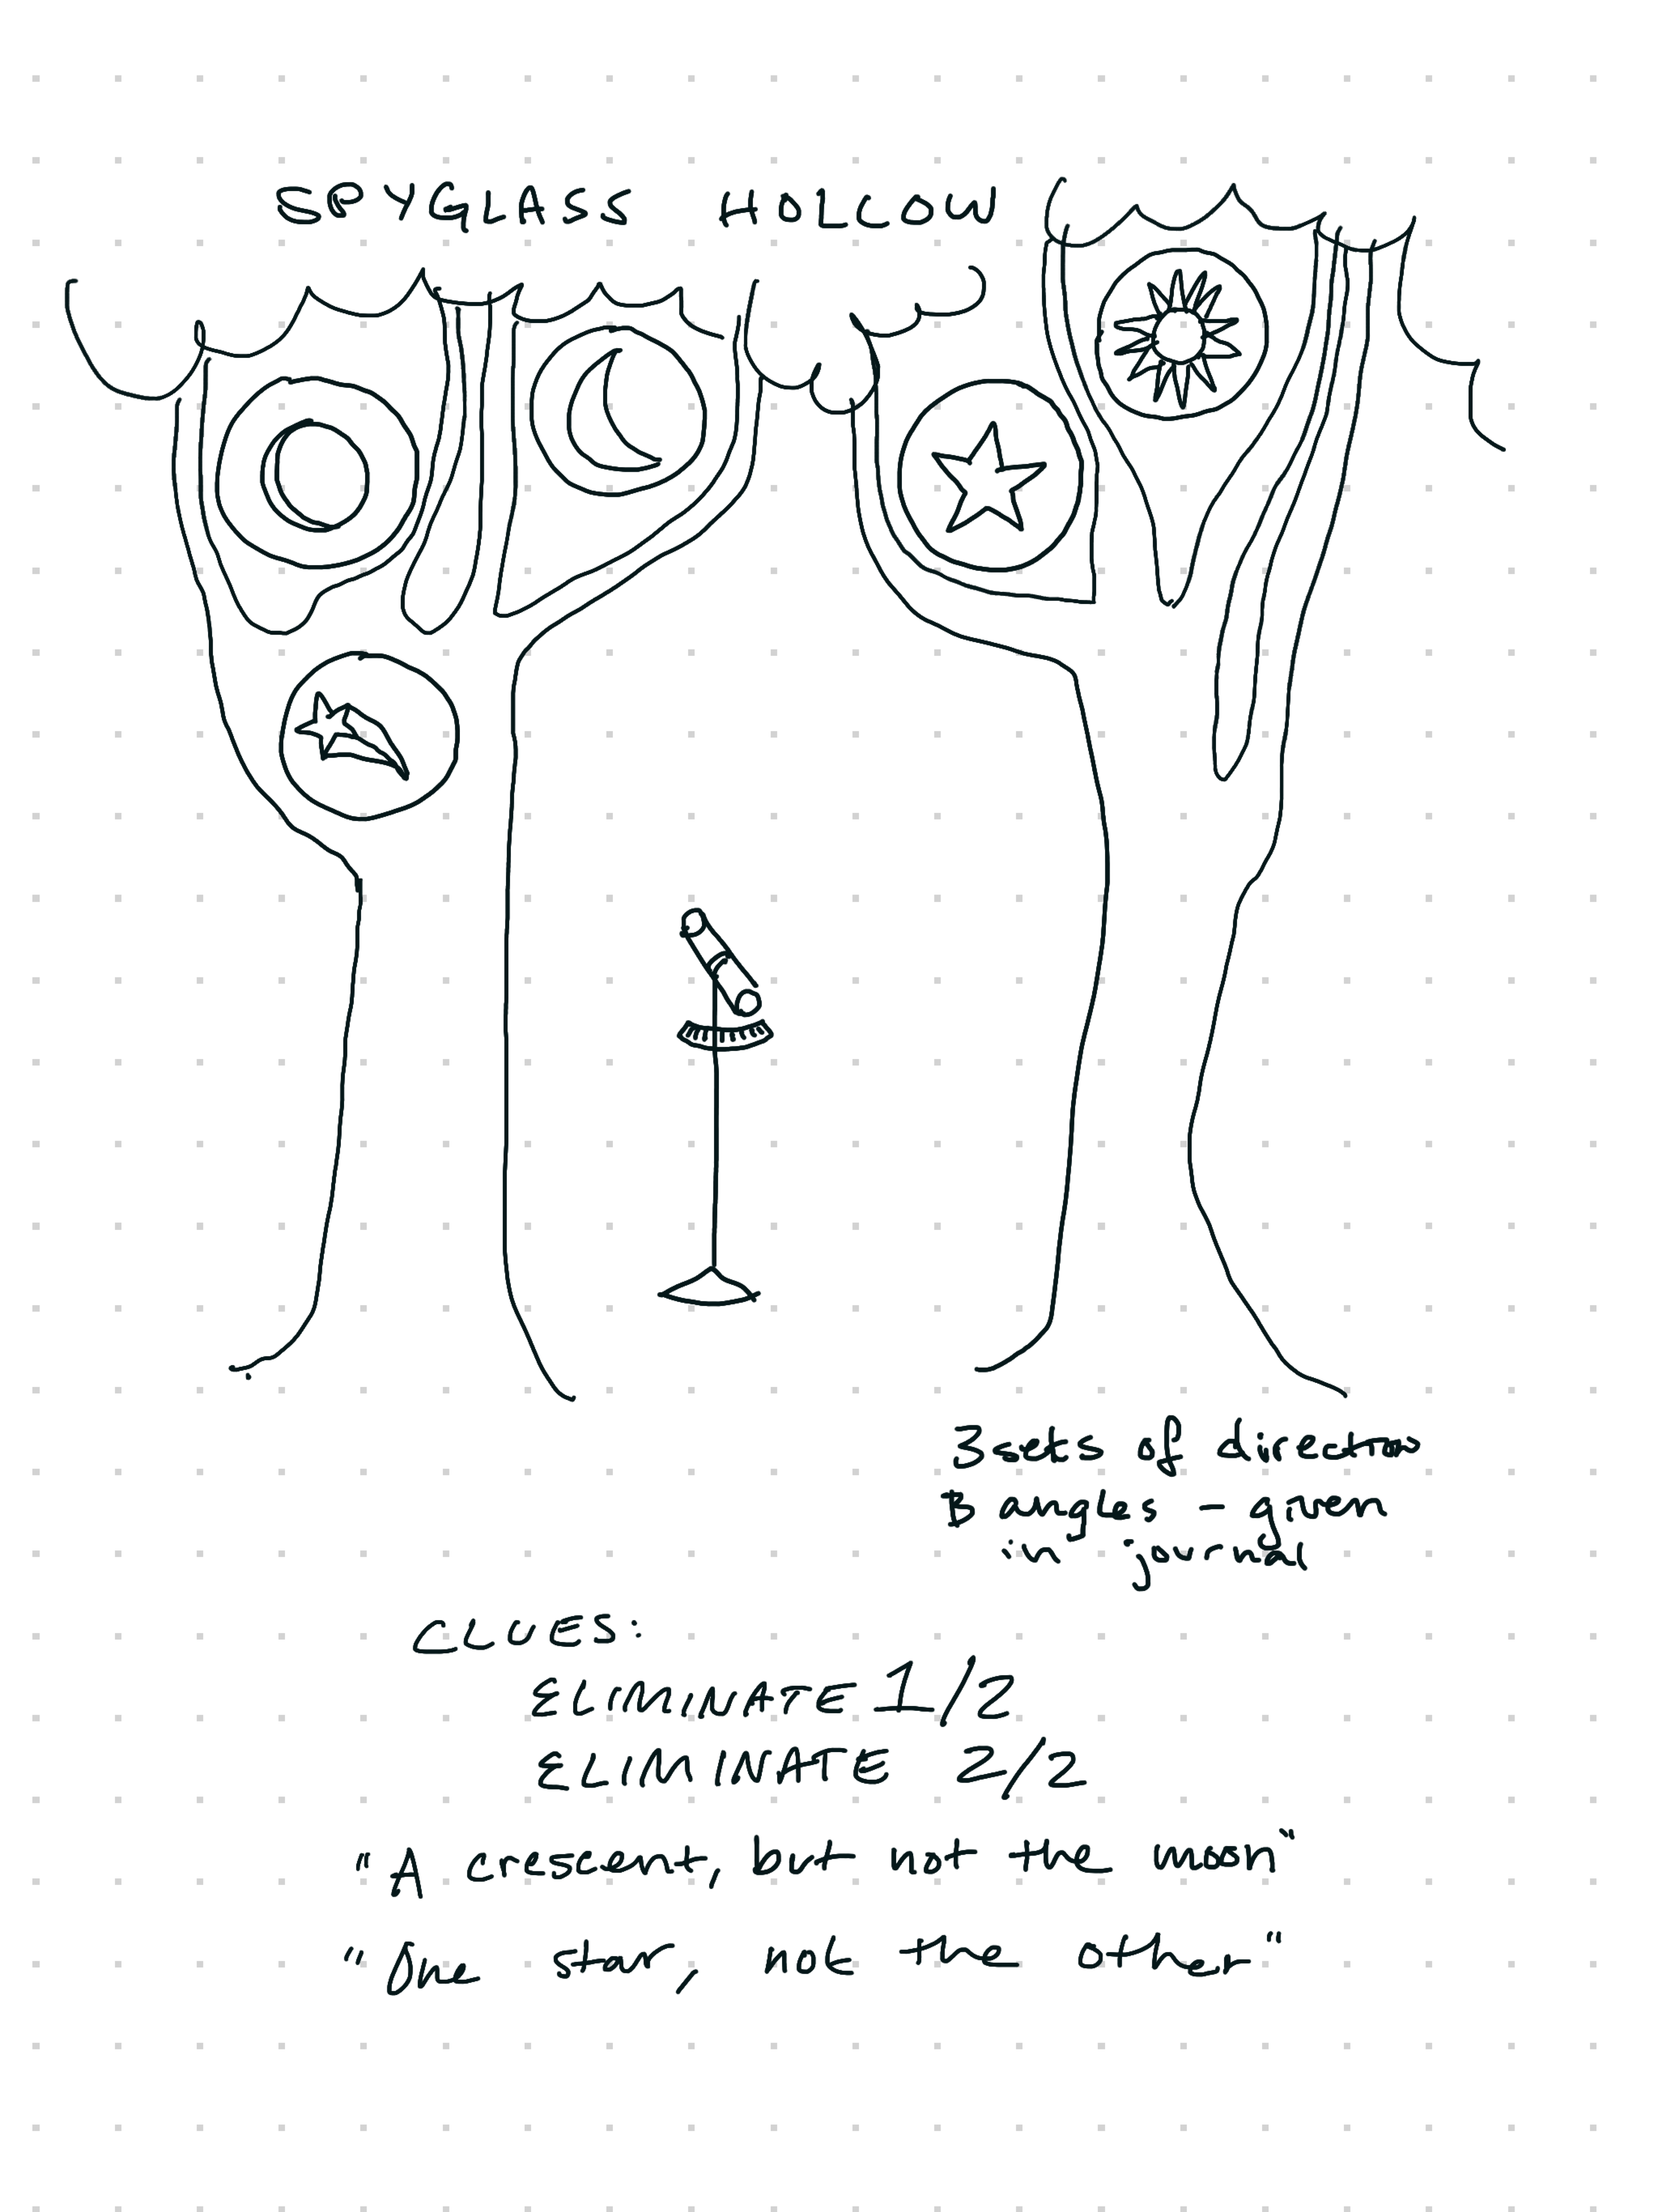 SPYGLASS HOLLOW
3 sets of direction
angles - given
in journal
CLUES:
ELIMINATE 1/2
ELIMINATE 2/2
"A crescent, but not the moon"
"One star, not the other"